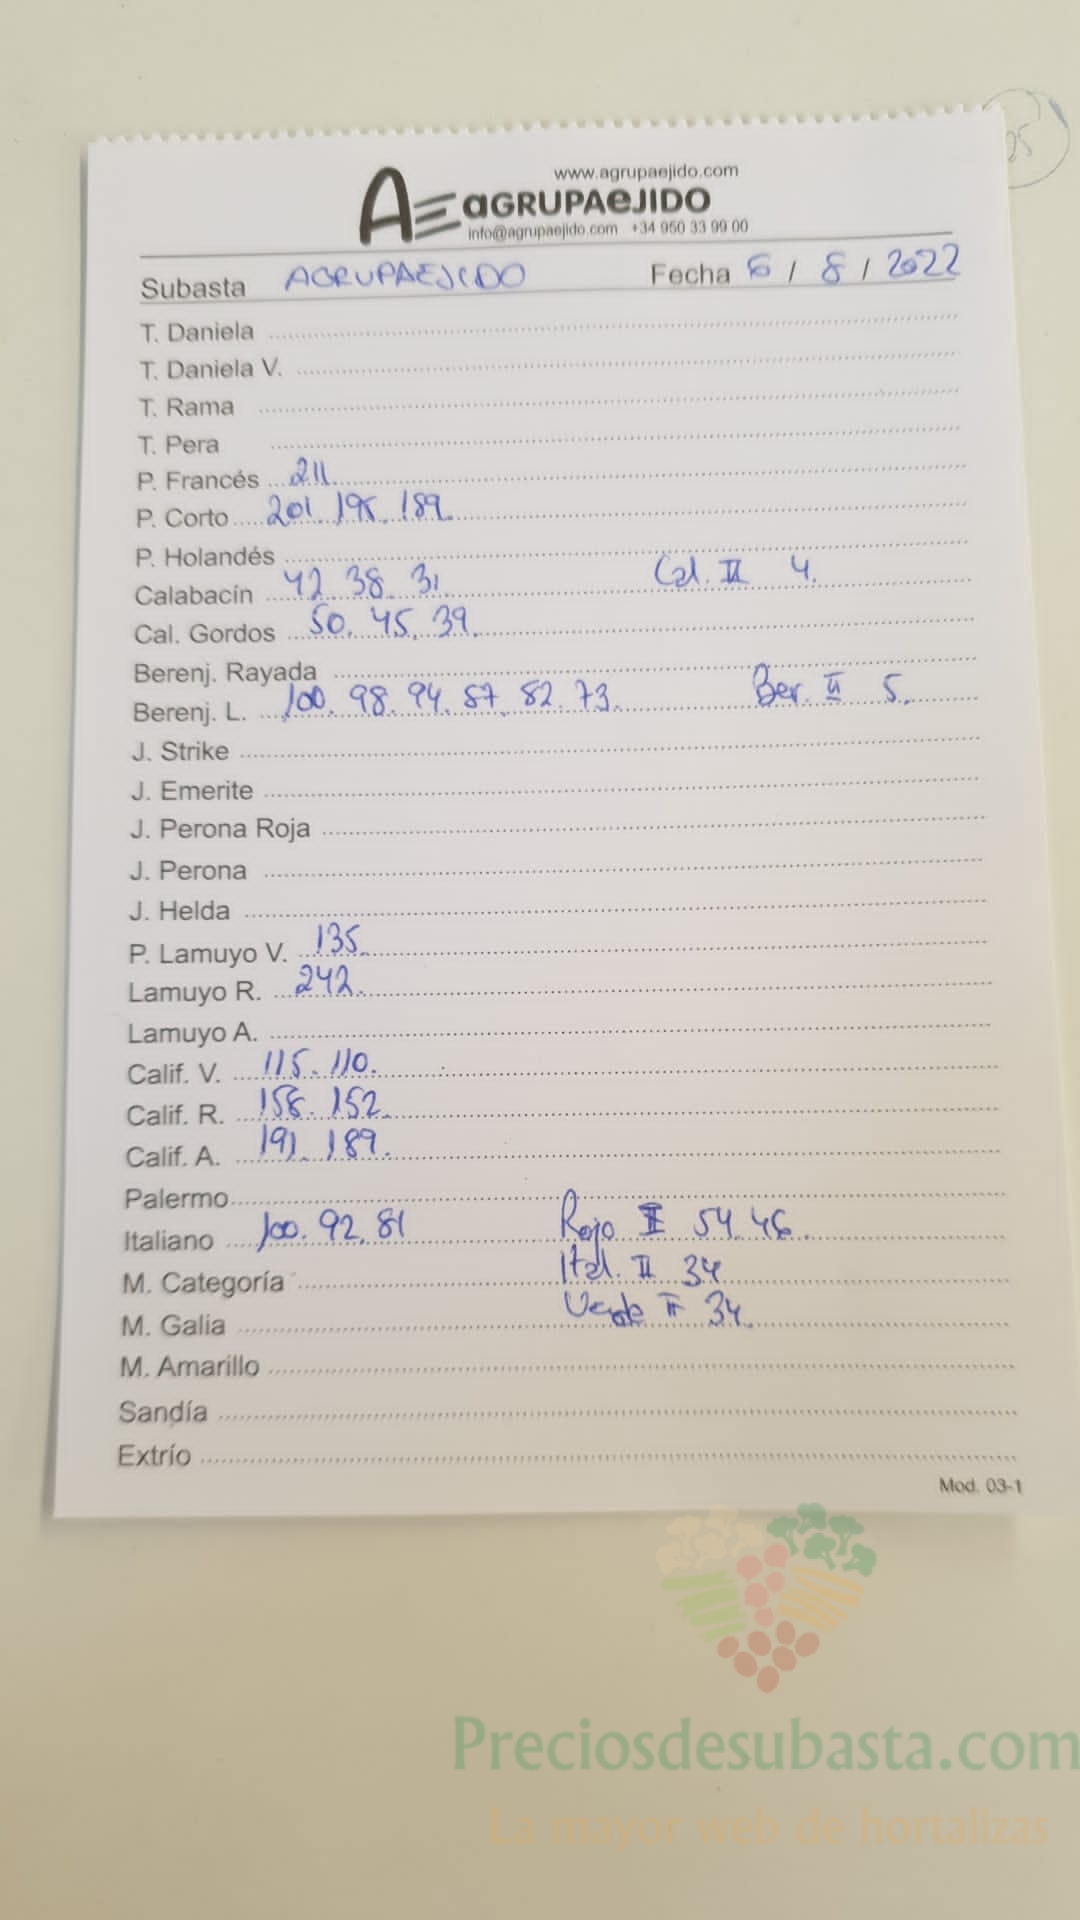 25
www.agrupaejido.com
AE aGRUPAeJIDO
info@agrupaejido.com +34 950 33 99 00
Subasta AGRUPAEJIDO Fecha 6 / 8 / 2022
T. Daniela
T. Daniela V.
T. Rama
T. Pera
P. Francés 211
P. Corto 201. 195. 189.
P. Holandés
Calabacín 42. 38. 31. Cal. II 4.
Cal. Gordos 50. 45. 39.
Berenj. Rayada
Berenj. L. 100. 98. 94. 87. 82. 73. Ber. II 5.
J. Strike
J. Emerite
J. Perona Roja
J. Perona
J. Helda
P. Lamuyo V. 135.
Lamuyo R. 242.
Lamuyo A.
Calif. V. 115. 110.
Calif. R. 158. 152.
Calif. A. 191. 189.
Palermo
Italiano 100. 92. 81 Rojo II 54. 46.
M. Categoría Ital. II 34
M. Galia Verde II 34.
M. Amarillo
Sandía
Extrío
Mod. 03-1
Preciosdesubasta.com
La mayor web de hortalizas